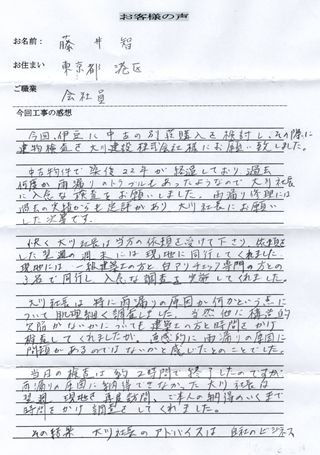 お客様の声
お名前： 藤井 智
お住まい 東京都 港区
ご職業 会社員
今回工事の感想
今回、伊豆に中古の別荘購入を検討し、その際に
建物検査を大川建設株式会社様にお願い致しました。
中古物件で築後22年が経過しており、過去
何度か雨漏りのトラブルもあったようなので、大川社長
に入念な検査をお願いしました。雨漏り修理には
過去の実績からも定評があり、大川社長にお願い
した次第です。
快く大川社長は当方の依頼を受けて下さり、依頼を
した翌週の週末には現地に同行してくれました。
現地には一級建築士の方と白アリチェック専門の方との
3名で同行し、入念な調査を実施してくれました。
大川社長は特に雨漏りの原因が何かという点に
ついて肌理細く調査しました。当然他に構造的
欠陥がないかについても建築士の方と時間をかけ
検査してくれましたが、直感的に雨漏りの原因に
問題があるのではないかと感じたとのことでした。
当日の検査は約2時間で終了したのですが、
雨漏りの原因に納得できなかった大川社長は
翌週、現地を再度訪問、ご本人の納得のいくまで
時間をかけ調査をしてくれました。
その結果、大川社長のアドバイスは、自社のビジネス